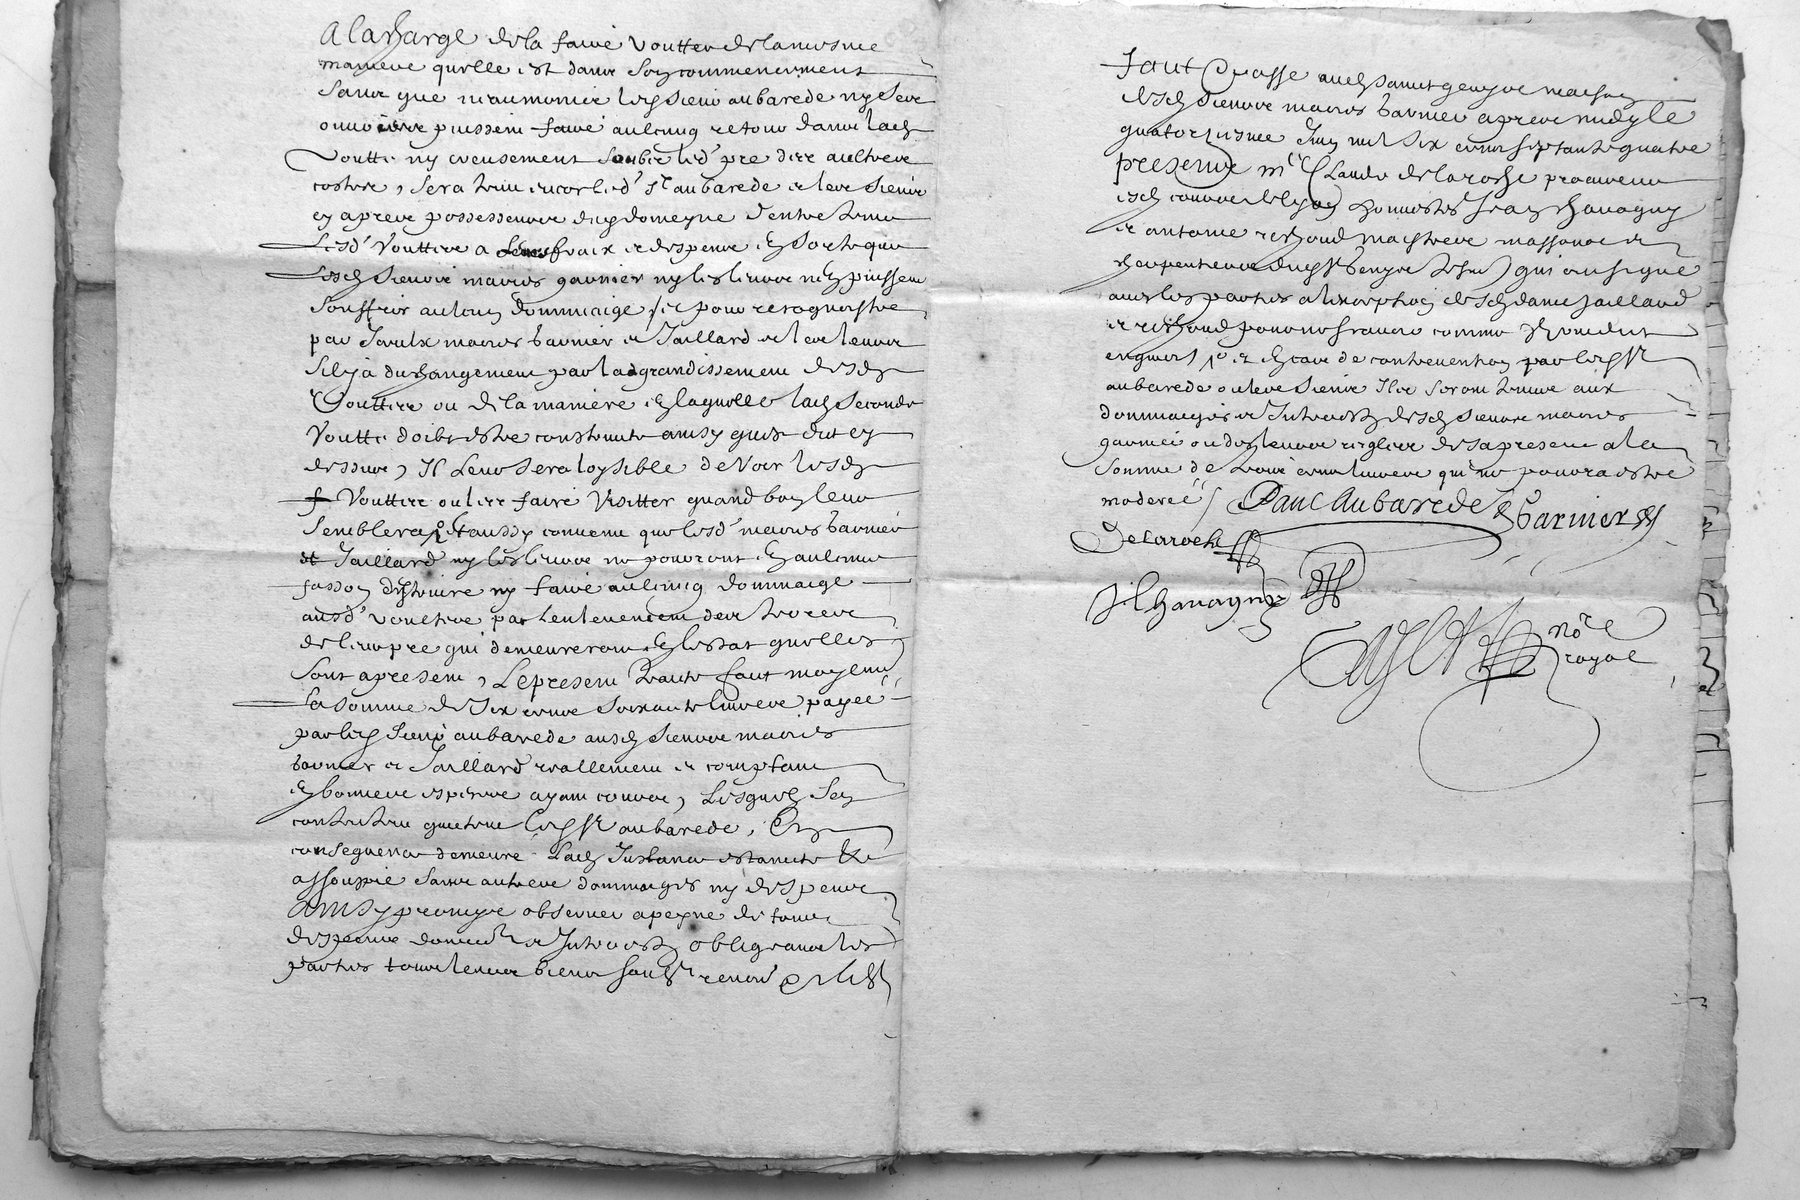 A la charge de la faire voutter de la mesme
maniere quelle est dans son commencement
sans que neaumoings led Sieur aubarede ny ses
ouvriers puissent faire aulcung retour dans lad
voutte ny creusement soubz led pre des aultres
costes, sera tenu encor led Sr aubarede et les siens
et apres possesseurs dud domeyne dentretenir
lesd vouttes a leurs fraix et despens en sorte que
lesd Sieurs mariés garnier ny les leurs n'en puissent
souffrir aulcun dommaige, et pour recognoistre
par iceulx mariés garnier et Jaillard et les leurs
sil y a du changement par l'aagrandissement desd
vouttes ou de la maniere en laquelle lad seconde
voutte doibt estre construite ainsy quest dit cy
dessus, Il leur sera loysible de voir lesd
vouttes ou les faire visitter quand bon leur
semblera, Est aussy convenu que lesd mariés garnier
et Jaillard ny les leurs ne pourront en aulcune
fasson destruire ny faire aulcung dommaige
ausd vouttes par lenlevement des terres
de leur pre qui demeureront en lestat quelles
sont a present, Le present traité fait moyenant
la somme de six cents soixante livres payée
par led Sieur aubarede ausd Sieurs mariés
garnier et Jaillard reallement et comptant
en bonnes especes ayant cours, Lesquels sen
contentent quittent led Sr aubarede, Et en
consequence demeure lad Instance estainte et
assoupie sans autres dommages ny despens
Ainsy promis observer a peyne de tous
despens dommes et Interests obligeants les
parties tous leurs biens soubs renon
Fait et passé aud Saint genys maison
desd Sieurs mariés garnier apres midy le
quatorziesme Juin mil six cents septante quatre
presents me Claude de la roche procureur
esd cours de lyon honnestes Jean chavagny
et antoine richoud maistres massons et
charpentiers dud St genys tesm qui ont signé
avec les parties a l'exception desd dame Jaillard
et richoud pour ne scavoir comme ont dit
enquis et en cas de contrevention par led Sr
aubarede ou les siens Ils seront tenus aux
dommages et Interests desd Sieurs mariés
garnier ou des leurs reglés des a present a la
somme de trois cents livres qui ne pourra estre
moderée / Paul Aubarede Garnier
Delaroche
J Chavagny
nore
royal